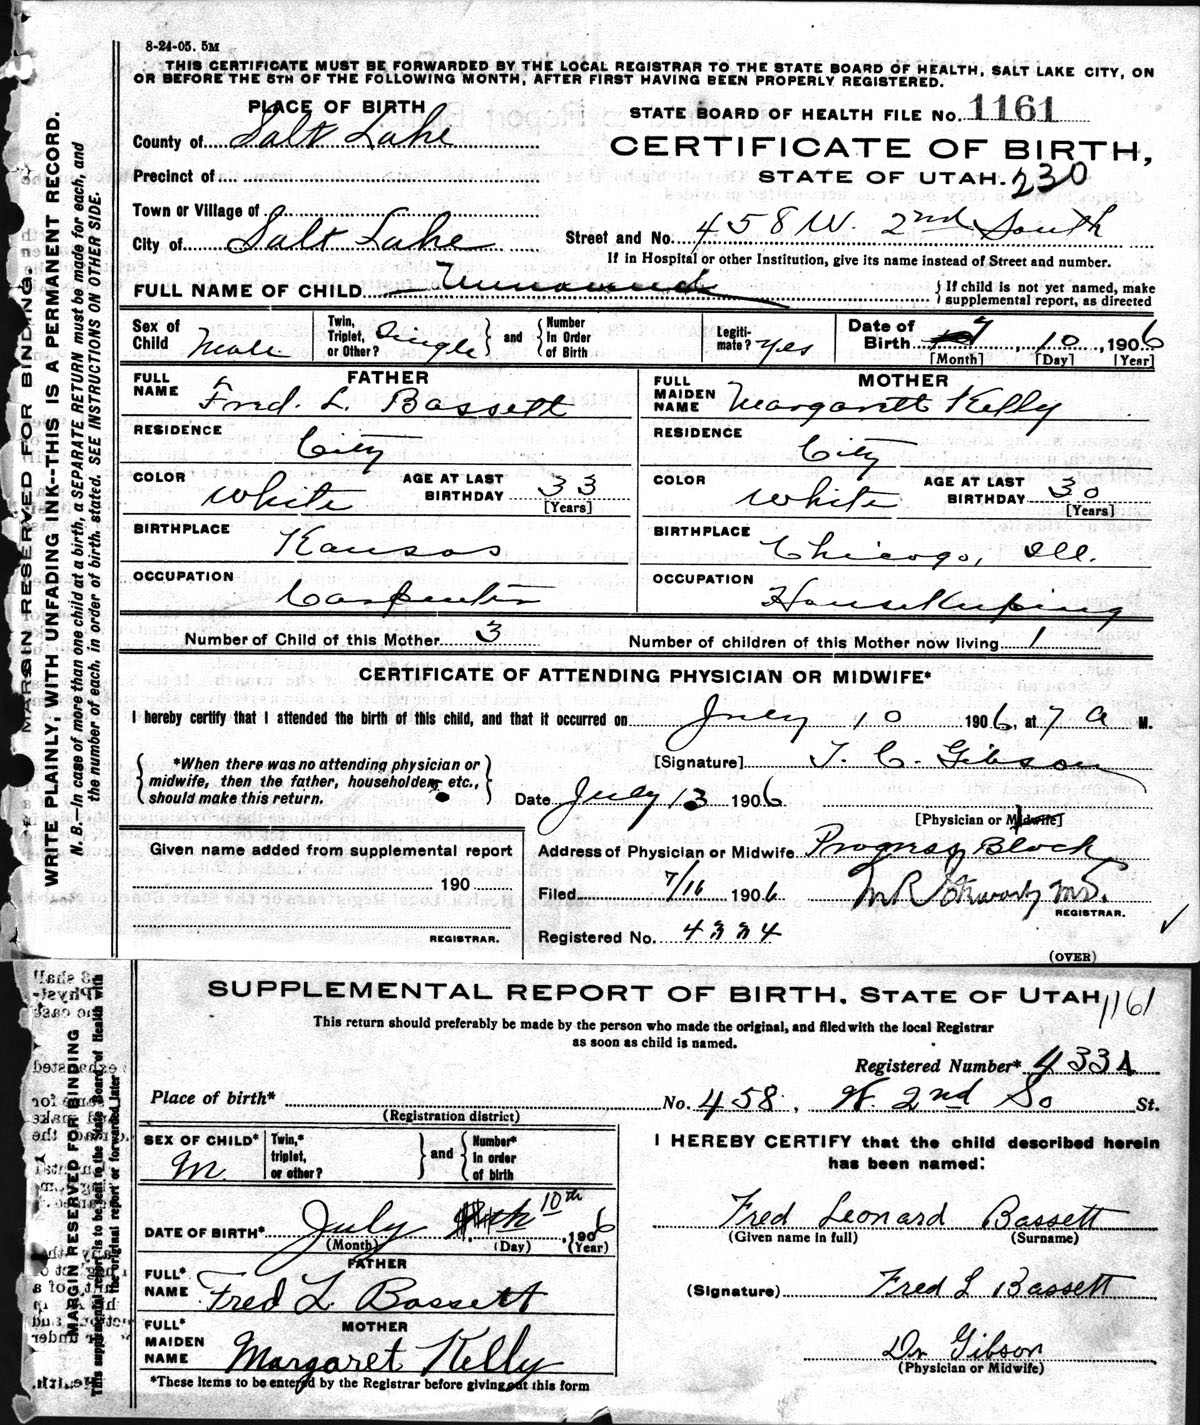 8-24-05. 5M
THIS CERTIFICATE MUST BE FORWARDED BY THE LOCAL REGISTRAR TO THE STATE BOARD OF HEALTH, SALT LAKE CITY, ON
OR BEFORE THE 5TH OF THE FOLLOWING MONTH, AFTER FIRST HAVING BEEN PROPERLY REGISTERED.
PLACE OF BIRTH
STATE BOARD OF HEALTH FILE NO. 1161
County of Salt Lake
CERTIFICATE OF BIRTH,
Precinct of
STATE OF UTAH. 230
Town or Village of
City of Salt Lake
Street and No. 458 W. 2nd South
If in Hospital or other Institution, give its name instead of Street and number.
FULL NAME OF CHILD Unnamed
{ If child is not yet named, make
supplemental report, as directed
Sex of Child Male
Twin, Triplet, or Other? Single } and { Number In Order of Birth
Legiti-mate? yes
Date of Birth 7, 10, 1906
[Month] [Day] [Year]
FATHER
MOTHER
FULL NAME Fred. L. Bassett
FULL MAIDEN NAME Margarett Kelly
RESIDENCE City
RESIDENCE City
COLOR White AGE AT LAST BIRTHDAY 33 [Years]
COLOR White AGE AT LAST BIRTHDAY 30 [Years]
BIRTHPLACE Kansas
BIRTHPLACE Chicago, Ill.
OCCUPATION Carpenter
OCCUPATION Housekeeping
Number of Child of this Mother 3
Number of children of this Mother now living 1
CERTIFICATE OF ATTENDING PHYSICIAN OR MIDWIFE*
I hereby certify that I attended the birth of this child, and that it occurred on July 10 1906, at 7 a M.
{ *When there was no attending physician or
midwife, then the father, householder, etc.,
should make this return. }
[Signature] T. C. Gibson
Date July 13 1906
[Physician or Midwife]
Given name added from supplemental report
Address of Physician or Midwife Progress Block
190
Filed 7/16 1906
M.D.
REGISTRAR.
REGISTRAR.
Registered No. 4334
(OVER)
MARGIN RESERVED FOR BINDING.
WRITE PLAINLY, WITH UNFADING INK--THIS IS A PERMANENT RECORD.
N. B.—In case of more than one child at a birth, a SEPARATE RETURN must be made for each, and
the number of each, in order of birth, stated. SEE INSTRUCTIONS ON OTHER SIDE.
SUPPLEMENTAL REPORT OF BIRTH, STATE OF UTAH 1161
This return should preferably be made by the person who made the original, and filed with the local Registrar
as soon as child is named.
Registered Number* 4334
Place of birth* No. 458, W. 2nd So St.
(Registration district)
SEX OF CHILD* M.
Twin,* triplet, or other? } and { Number* In order of birth
I HEREBY CERTIFY that the child described herein
has been named:
DATE OF BIRTH* July 10th, 1906
(Month) (Day) (Year)
Fred Leonard Bassett
(Given name in full) (Surname)
FATHER
FULL* NAME Fred L. Bassett
(Signature) Fred L Bassett
MOTHER
FULL* MAIDEN NAME Margaret Kelly
Dr Gibson
(Physician or Midwife)
*These items to be entered by the Registrar before giving out this form
MARGIN RESERVED FOR BINDING
This supplemental report is to be sent to the State Board of Health with
the original report or forwarded later